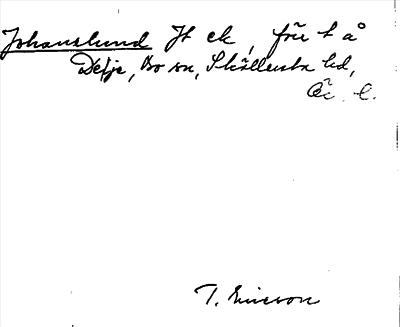 Johanslund Jt ek, från t å
Detje, Bo sn, Sköllersta hd,
Ör. l.
T. Ericson